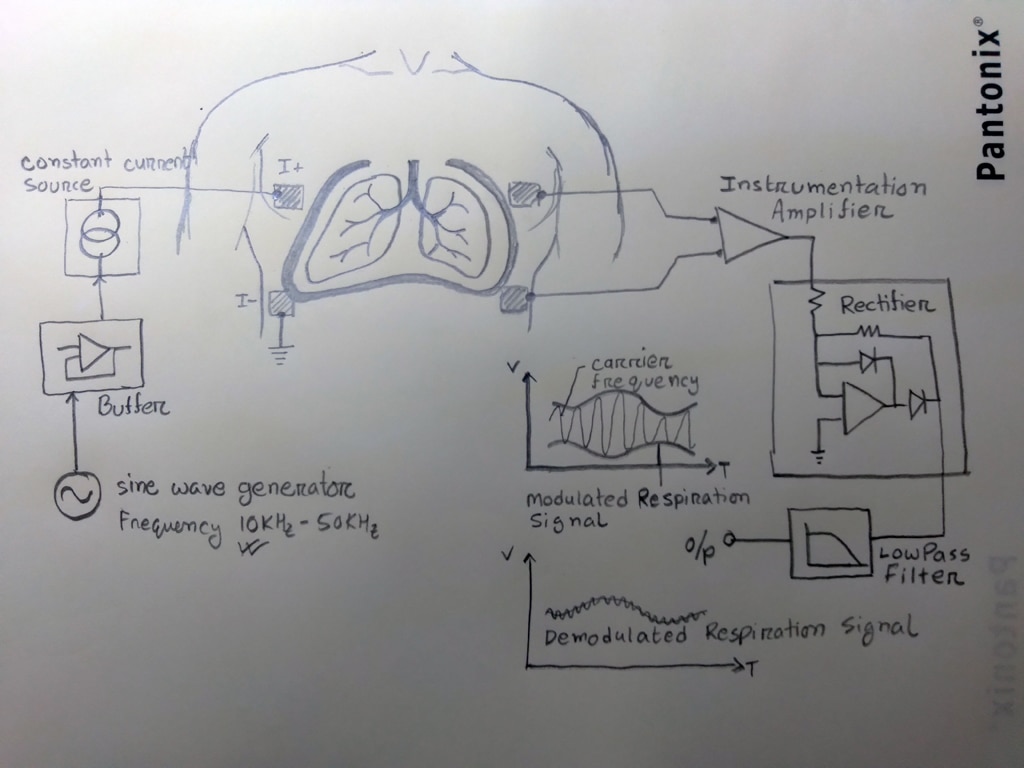 Pantonix®
constant current
source
I+
I-
Instrumentation
Amplifier
Rectifier
Buffer
V
carrier
frequency
T
Modulated Respiration
Signal
sine wave generator
Frequency 10KHz - 50KHz
O/p
Low Pass
Filter
V
Demodulated Respiration Signal
T
Pantonix